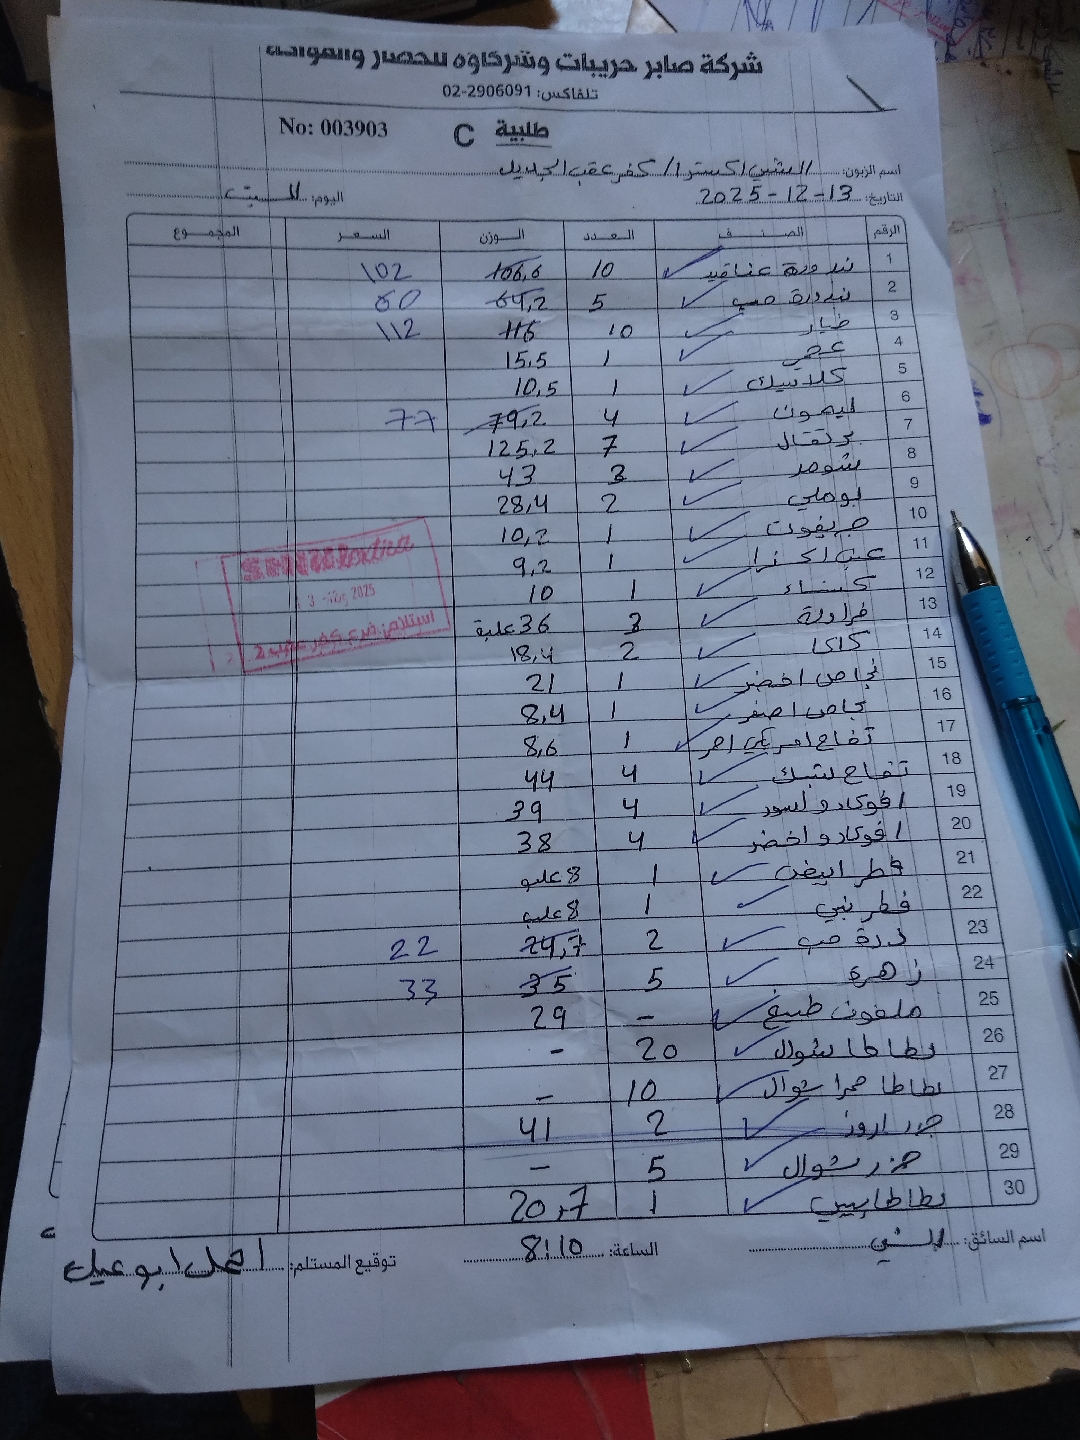 شركة صابر حريبات وشركاؤه للخضار والفواكه
تلفاكس: 02-2906091
طلبية C No: 003903
اسم الزبون: الشني اكسترا / كفر عقب الجديد
التاريخ: 13-12-2025 اليوم: السبت
الرقم الصنف العدد الوزن السعر المجموع
1 بندورة عناقيد 10 106,6 102
2 بندورة حب 5 64,2 60
3 خيار 10 116 112
4 عصر 1 15.5
5 كلاسيك 1 10,5
6 ليمون 4 79,2 77
7 برتقال 7 125,2
8 شومر 3 43
9 بوملي 2 28,4
10 جريفوت 1 10,2
11 1 9,2
12 كستناء 1 10
13 فراولة 3 36 علبة
14 كاكا 2 18,4
15 نجاص اخضر 1 21
16 نجاص اصفر 1 8,4
17 تفاح امريكي احمر 1 8,6
18 تفاح 4 44
19 افوكادو اسود 4 39
20 افوكادو اخضر 4 38
21 فطر ابيض 1 8 علب
22 فطر بني 1 8 علب
23 ذرة حب 2 24,7 22
24 زهرة 5 35 33
25 ملفوف طبيخ - 29
26 بطاطا شوال 20 -
27 بطاطا حمرا شوال 10 -
28 جزر اروز 2 41
29 جزر شوال 5 -
30 بطاطا بيبي 1 20,7
اسم السائق: الشني الساعة: 8:10 توقيع المستلم: احمد ابو عيد
2025